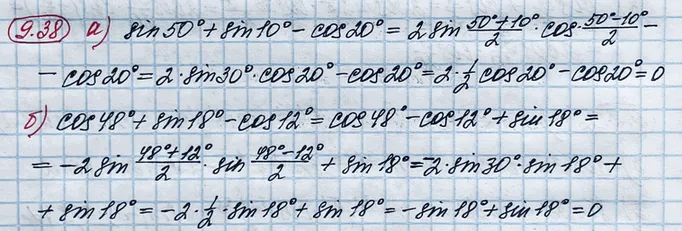 9.38 а) sin 50° + sin 10° – cos 20° = 2 sin (50°+10°)/2 · cos · (50°–10°)/2 –
– cos 20° = 2 · sin 30° · cos 20° – cos 20° = 2 · 1/2 cos 20° – cos 20° = 0
б) cos 48° + sin 18° – cos 12° = cos 48° – cos 12° + sin 18° =
= –2 sin (48°+12°)/2 · sin (48°–12°)/2 + sin 18° = –2 · sin 30° · sin 18° +
+ sin 18° = –2 · 1/2 · sin 18° + sin 18° = – sin 18° + sin 18° = 0